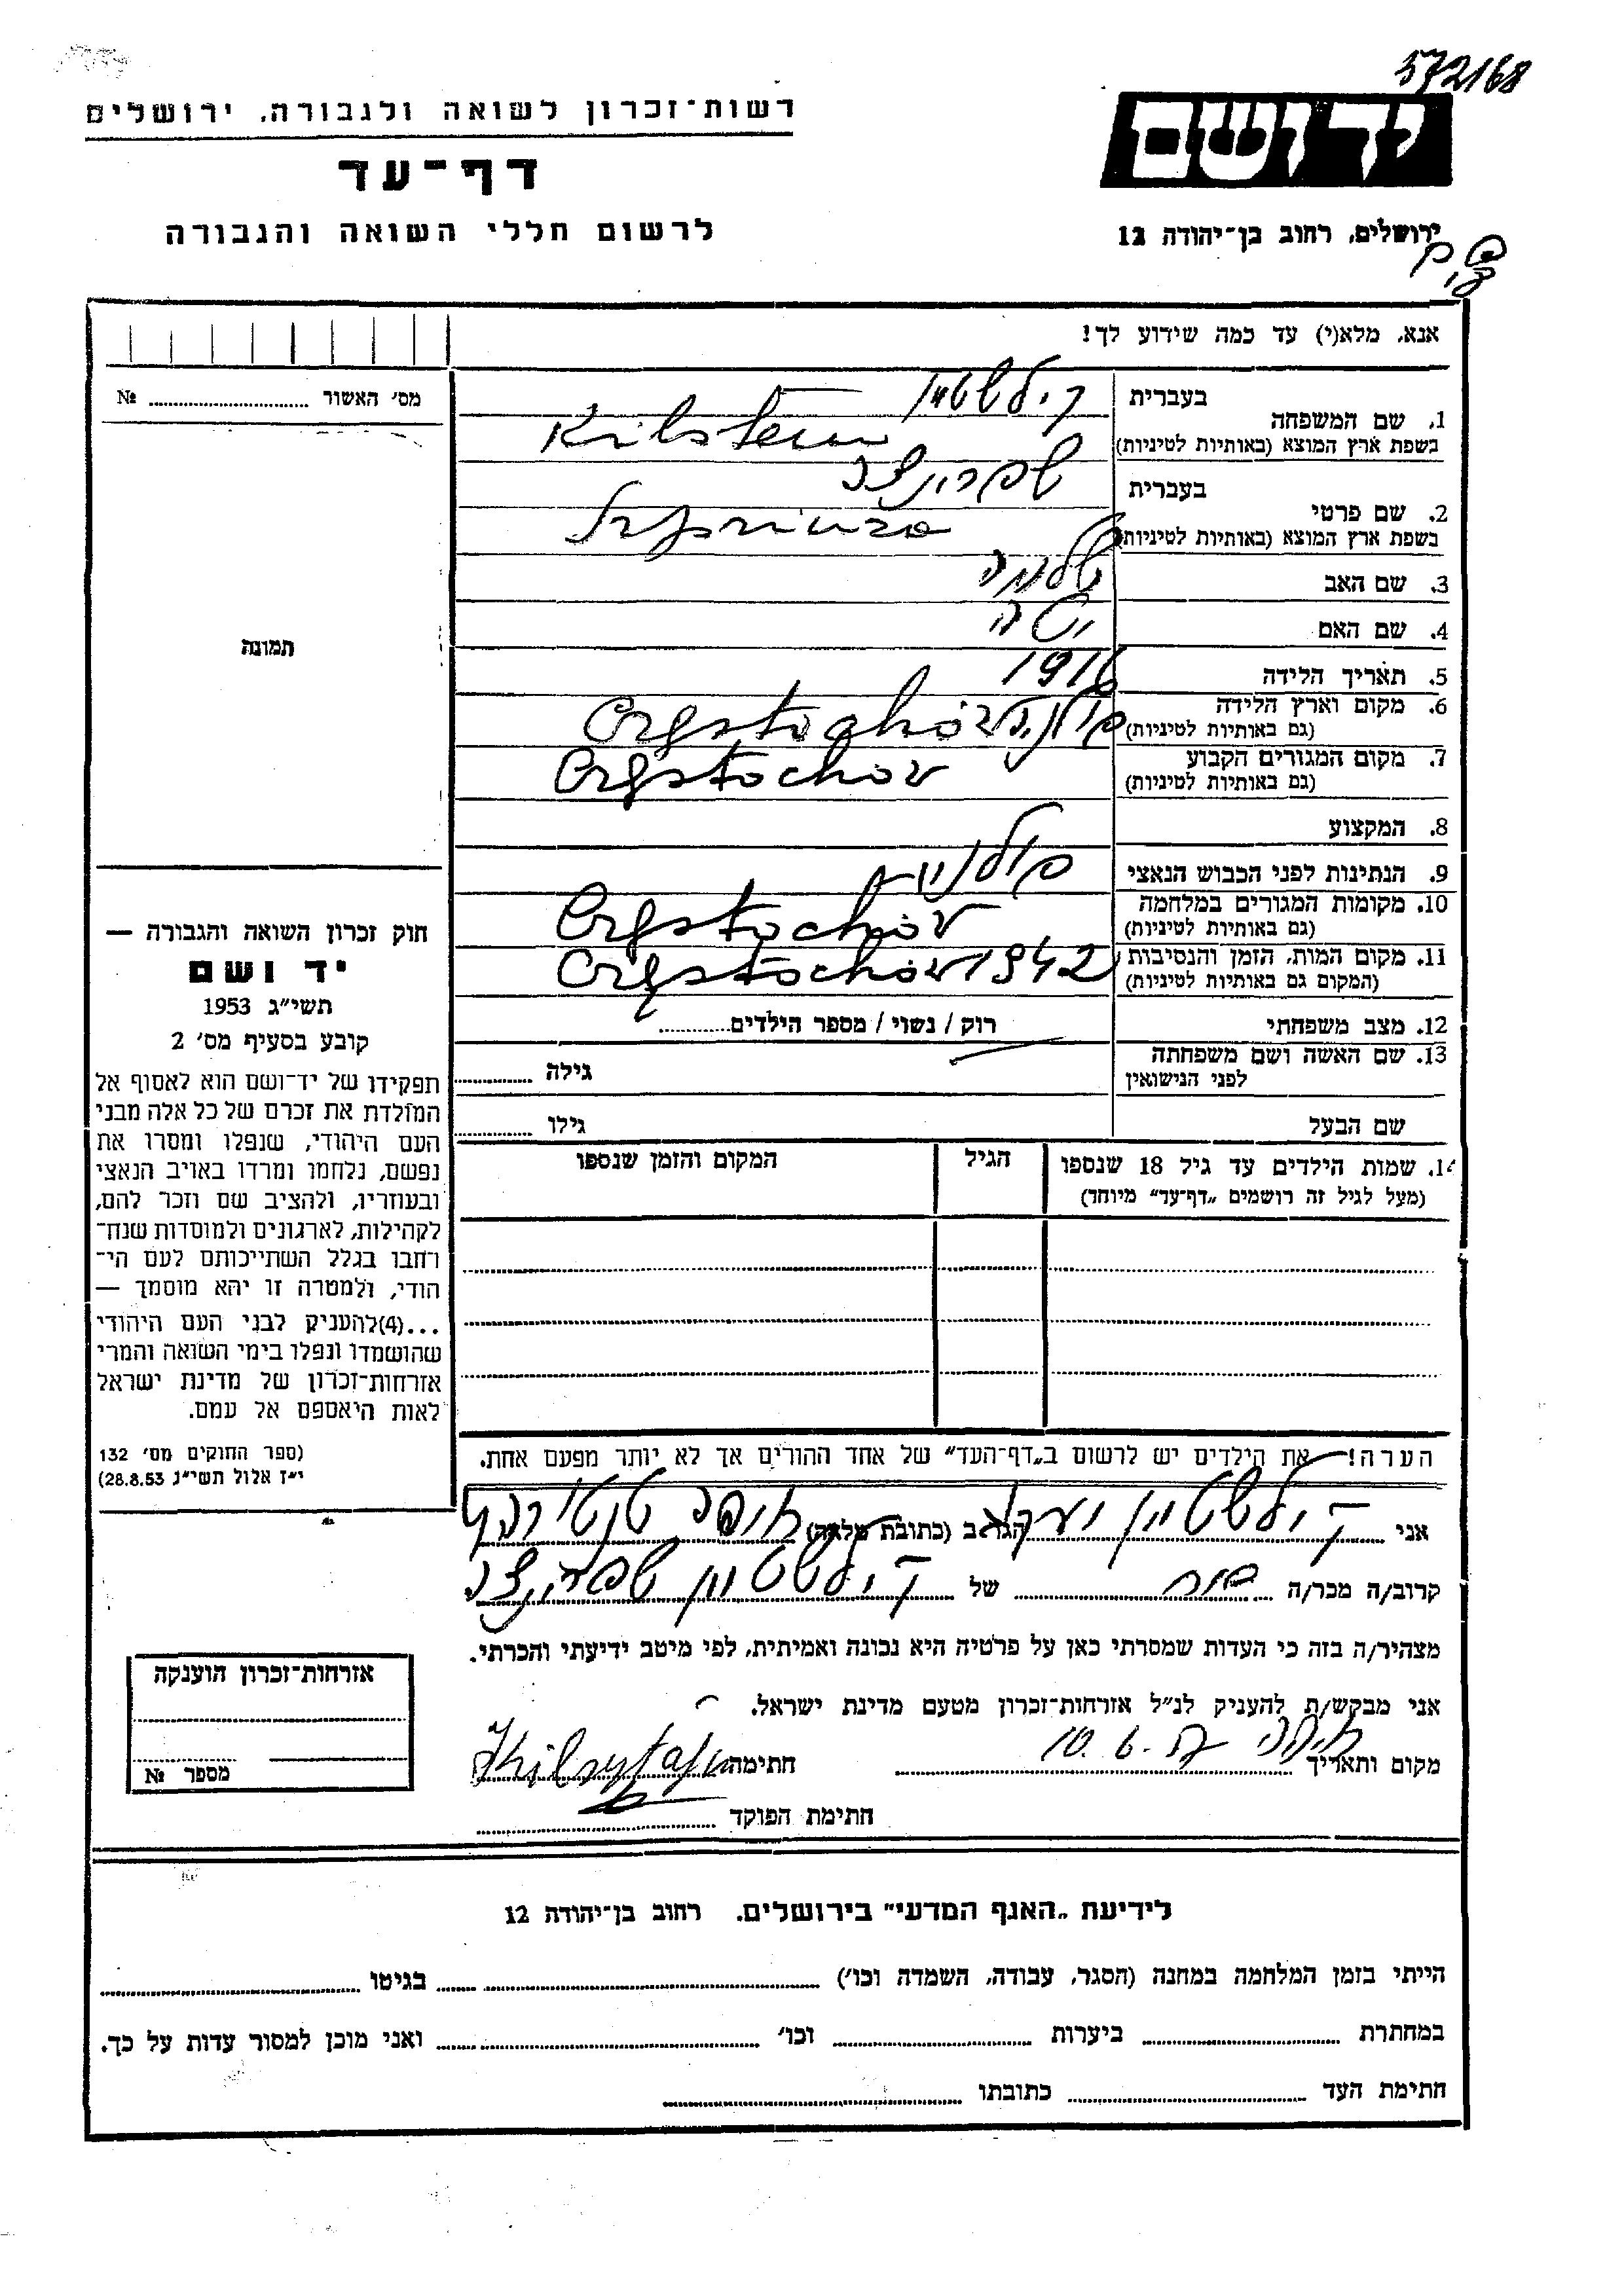 572168
רשות־זכרון לשואה ולגבורה, ירושלים
יד ושם
דף־עד
לרשום חללי השואה והגבורה
ירושלים, רחוב בן־יהודה 12
אנא, מלא(י) עד כמה שידוע לך!
מס׳ האשור № 
1. שם המשפחה
בעברית קילשטיין
בשפת ארץ המוצא (באותיות לטיניות) Kilstein
2. שם פרטי
בעברית שפרינצה
בשפת ארץ המוצא (באותיות לטיניות) Szprinza
3. שם האב שלמה
4. שם האם
5. תאריך הלידה 1916
6. מקום וארץ הלידה
(גם באותיות לטיניות) פולניה Częstochów
7. מקום המגורים הקבוע
(גם באותיות לטיניות) Częstochov
8. המקצוע
9. הנתינות לפני הכבוש הנאצי פולנית
10. מקומות המגורים במלחמה
(גם באותיות לטיניות) Częstochóv
11. מקום המות, הזמן והנסיבות
(המקום גם באותיות לטיניות) Częstochóv 1942
12. מצב משפחתי רוק / נשוי / מספר הילדים
13. שם האשה ושם משפחתה
לפני הנישואין גילה
שם הבעל גילו
14. שמות הילדים עד גיל 18 שנספו
(מעל לגיל זה רושמים „דף־עד״ מיוחד)
הגיל
המקום והזמן שנספו
תמונה
חוק זכרון השואה והגבורה —
יד ושם
תשי״ג 1953
קובע בסעיף מס׳ 2
תפקידו של יד־ושם הוא לאסוף אל
המולדת את זכרם של כל אלה מבני
העם היהודי, שנפלו ומסרו את
נפשם, נלחמו ומרדו באויב הנאצי
ובעוזריו, ולהציב שם וזכר להם,
לקהילות, לארגונים ולמוסדות שנח־
רחבו בגלל השתייכותם לעם הי־
הודי, ולמטרה זו יהא מוסמך —
...(4)להעניק לבני העם היהודי
שהושמדו ונפלו בימי השואה והמרי
אזרחות־זכרון של מדינת ישראל
לאות היאספם אל עמם.
(ספר החוקים מס׳ 132
י״ז אלול תשי״ג 28.8.53)
הערה! את הילדים יש לרשום ב„דף־העד״ של אחד ההורים אך לא יותר מפעם אחת.
אני קילשטיין יעקב הגר/ב (כתובת מלאה) חיפה
קרוב/ה מכר/ה של קילשטיין שפרינצה
מצהיר/ה בזה כי העדות שמסרתי כאן על פרטיה היא נכונה ואמיתית, לפי מיטב ידיעתי והכרתי.
אני מבקש/ת להעניק לנ״ל אזרחות־זכרון מטעם מדינת ישראל.
מקום ותאריך חיפה 10.6. חתימה
חתימת הפוקד
אזרחות־זכרון הוענקה
מספר №
לידיעת „האגף המדעי״ בירושלים. רחוב בן־יהודה 12
הייתי בזמן המלחמה במחנה (הסגר, עבודה, השמדה וכו׳) בגיטו
במחתרת ביערות וכו׳ ואני מוכן למסור עדות על כך.
חתימת העד כתובתו